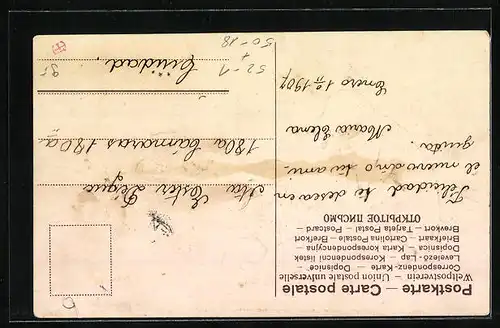 Postkarte — Carte postale
Weltpostverein — Union postale universelle
Correspondenz-Karte — Dopisnice —
Levelező-Lap — Korespondenční lístek
Dopisnica — Karta korespondencyjna
Briefkaart — Cartolina Postale — Brefkort
Brevkort — Tarjeta Postal — Postcard
ОТКРЫТОЕ ПИСЬМО
Felicidad te desea en
el nuevo año tu ami-
guita.
Maria Elena
Enero 1º 1907
Ester
180a Cámaras 180a
Ciudad.
50-18
52-1
95